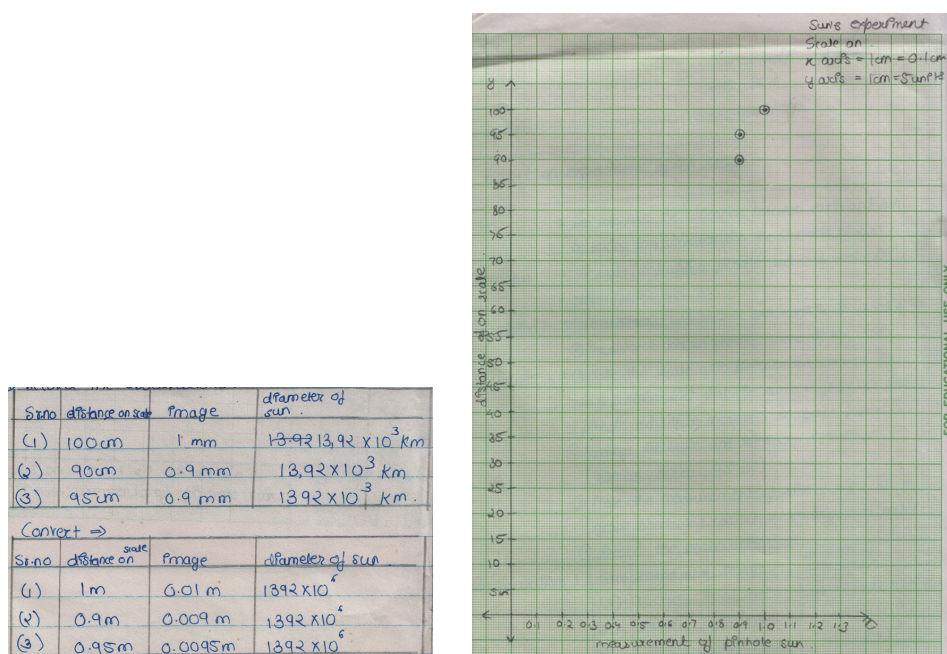 Sr.no distance on scale image diameter of sun.
(1) 100cm 1 mm 13.92 13,92 x 10³ km
(2) 90cm 0.9 mm 13,92 x 10³ km
(3) 95cm 0.9 mm 1392 x 10³ km.
Convert ⇒
Sr.no distance on scale image diameter of sun
(1) 1m 0.01 m 1392 x 10⁶
(2) 0.9m 0.009 m 1392 x 10⁶
(3) 0.95m 0.0095m 1392 x 10⁶
Sun's experiment
Scale on
x axis = 1cm = 0.1cm
y axis = 1cm = 5 units
100
95
90
85
80
75
70
65
60
55
50
45
40
35
30
25
20
15
10
5
distance of on scale
0.1 0.2 0.3 0.4 0.5 0.6 0.7 0.8 0.9 1.0 1.1 1.2 1.3
measurement of pinhole sun.
FOR EDUCATIONAL USE ONLY